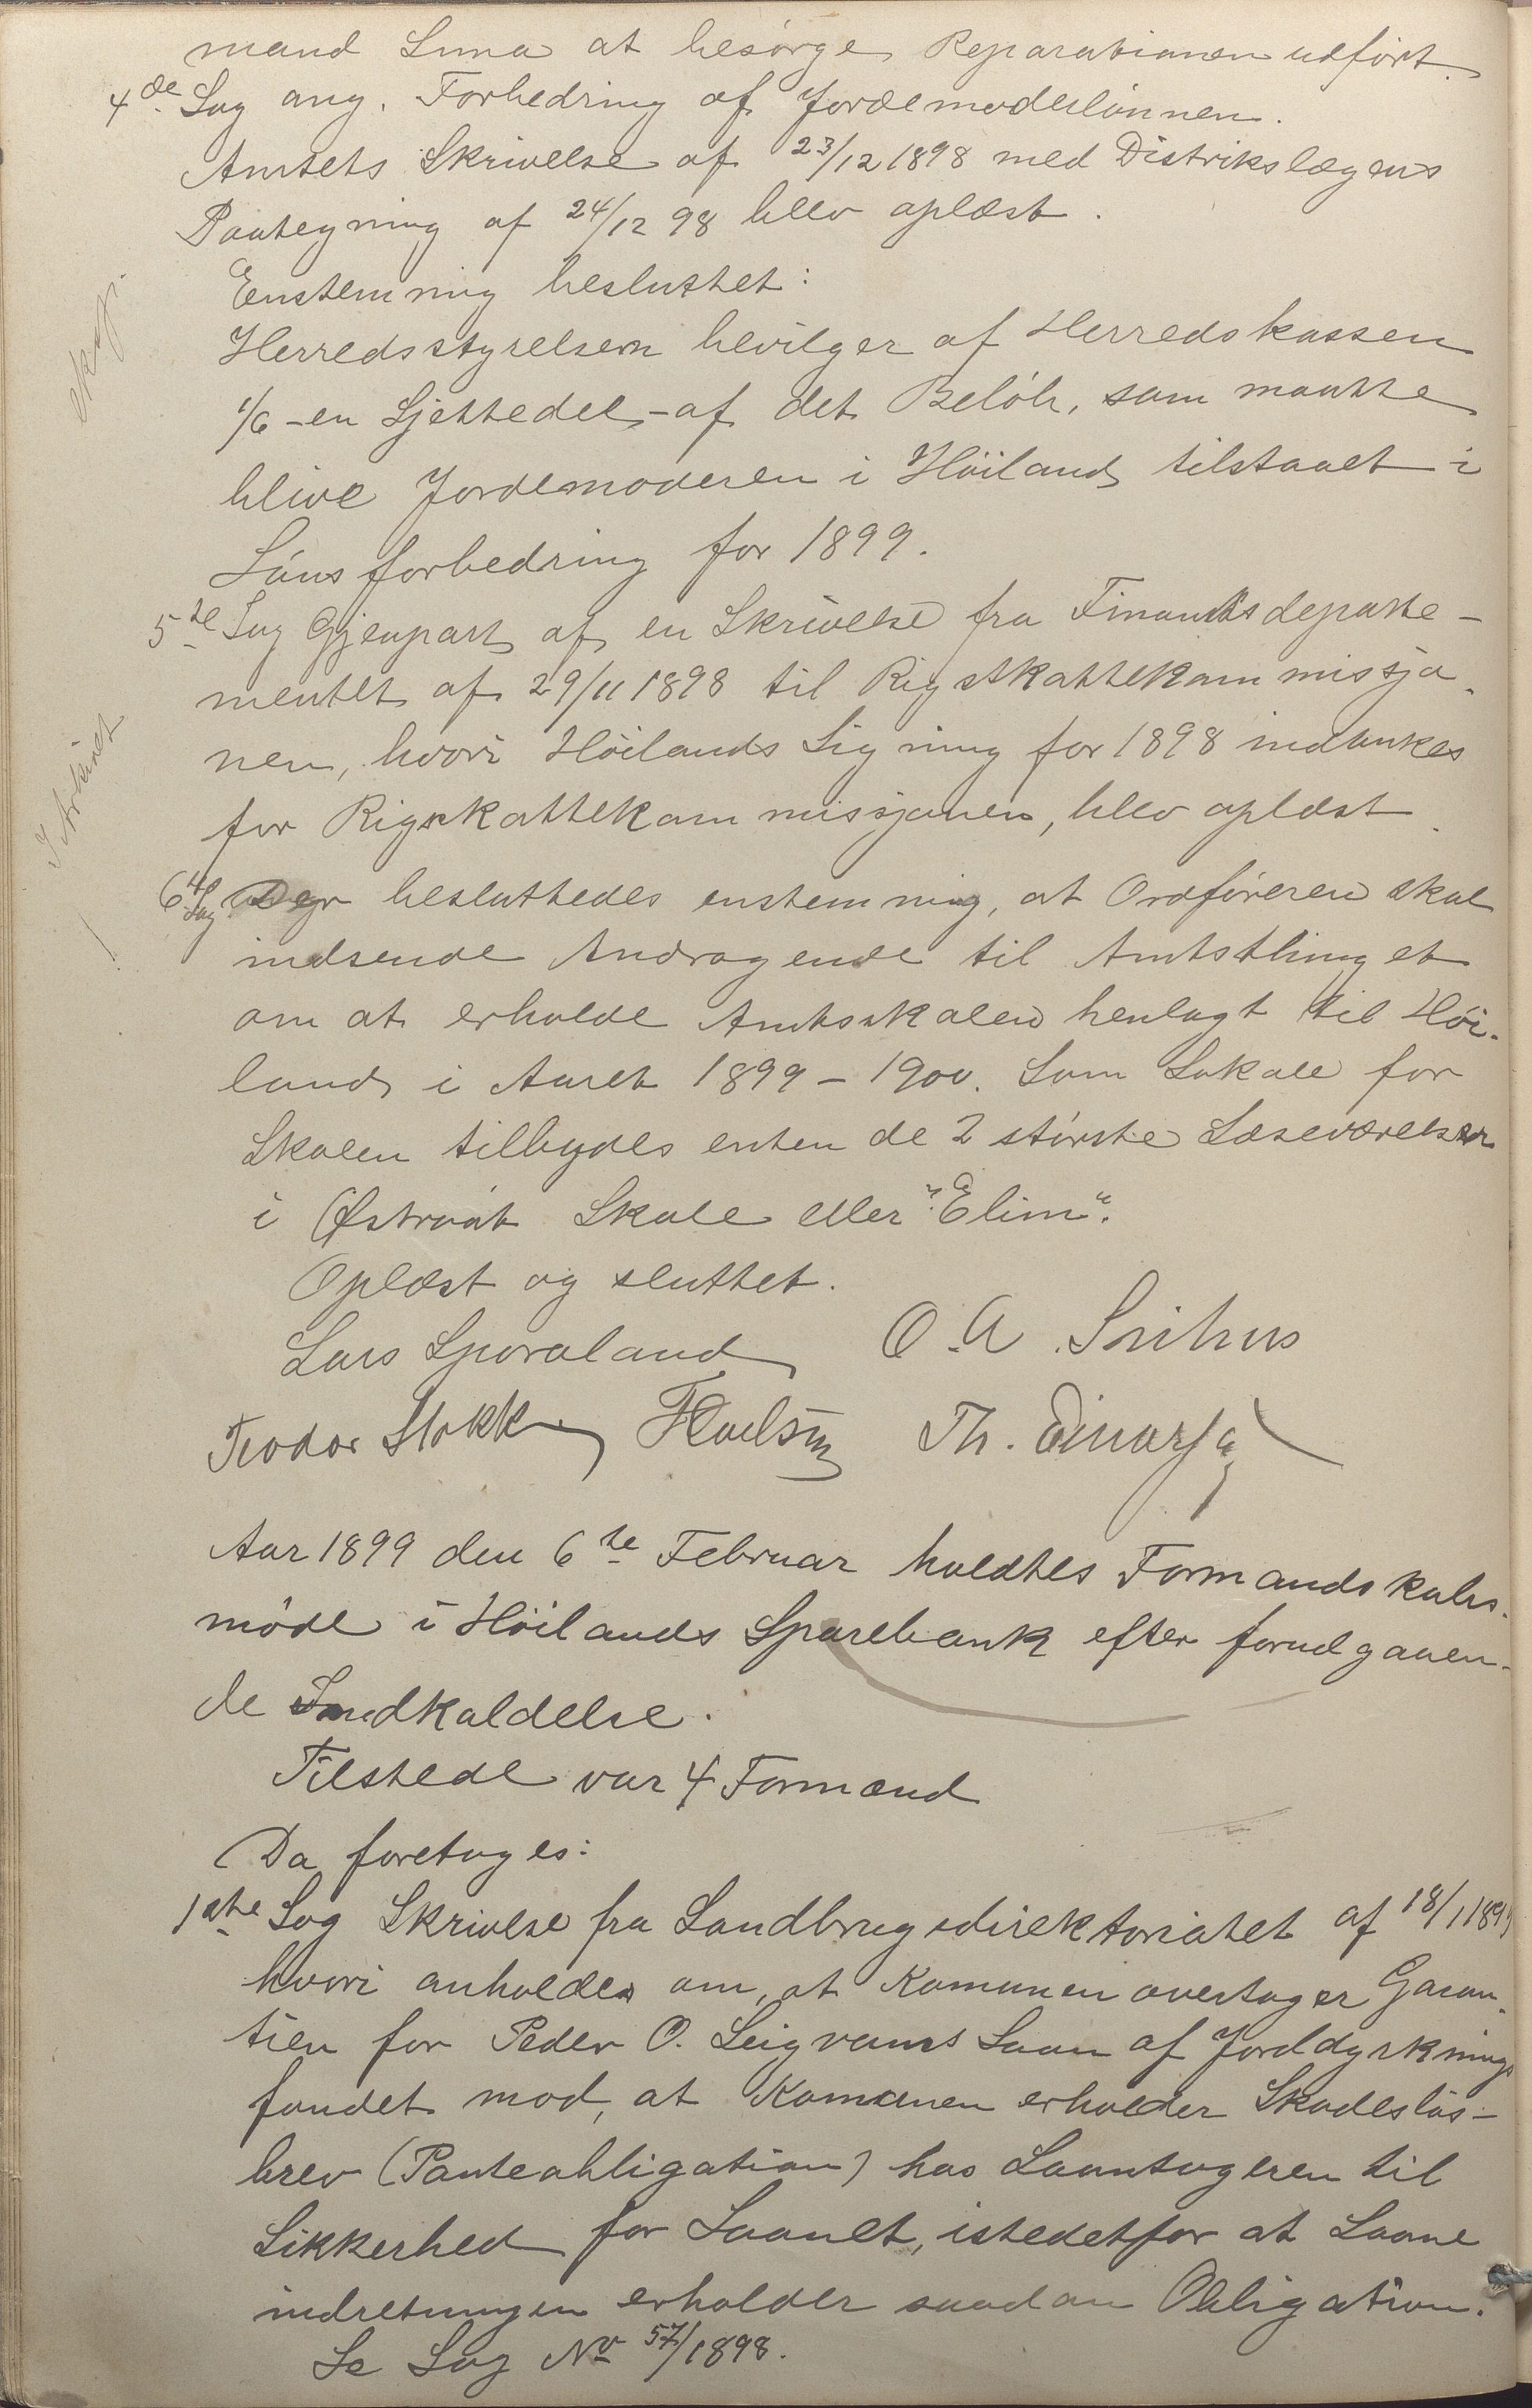 mand Luna at besørge Reparationen udført.
4de Sag ang. Forbedring af Jordemoderlønnen.
Amtets Skrivelse af 23/12 1898 med Distrikslægens
Paategning af 24/12 98 blev oplæst.
Enstemmig besluttet:
Herredsstyrelsen bevilger af Herredskassen
1/6 - en Sjettedel - af det Beløb, som maatte
blive Jordemoderen i Høiland tilstaaet i
Lønsforbedring for 1899.
5te Sag Gjenpart af en Skrivelse fra Finantsdeparte-
mentet af 29/11 1898 til Rigsskattekommissjo-
nen, hvori Høilands Ligning for 1898 indankes
for Rigskattekommissjonen, blev oplæst.
6te Sag Der besluttedes enstemmig, at Ordføreren skal
indsende Andragende til Amtsthinget
om at erholde Amtsskolen henlagt til Høi-
land i Aaret 1899 - 1900. Som Lokale for
Skolen tilbydes enten de 2 største Læseværelser
i Østraat Skole eller "Elim".
Oplæst og sluttet.
Lars Sporaland O. A. Svihus
Teodor Stokke
Aar 1899 den 6te Februar holdtes Formandskabs-
møde i Høilands Sparebank efter forudgaaen-
de Indkaldelse.
Tilstede var 4 Formænd
Da foretoges:
1ste Sag Skrivelse fra Landbrugsdirektoriatet af 18/1 1899
hvori anholdes om, at Komunen overtager Garan-
tien for Peder O. Leigvams Laan af Jorddyrknings
fondet mod, at Komunen erholder Skadesløs-
brev (Panteobligation) hos Laantageren til
Sikkerhed for Laanet, istedetfor at Laane
indretningen erholder saadan Obligation.
Se Sag No 57/1898.